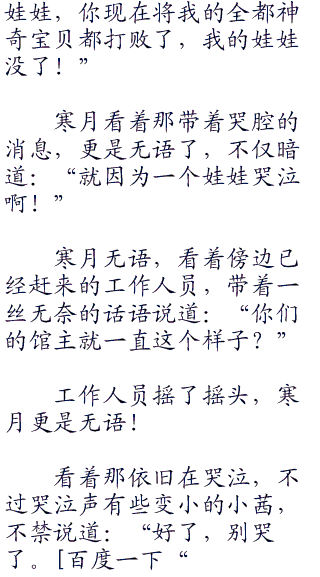 娃娃，你现在将我的全都神
奇宝贝都打败了，我的娃娃
没了！”
寒月看着那带着哭腔的
消息，更是无语了，不仅暗
道：“就因为一个娃娃哭泣
啊！”
寒月无语，看着傍边已
经赶来的工作人员，带着一
丝无奈的话语说道：“你们
的馆主就一直这个样子？”
工作人员摇了摇头，寒
月更是无语！
看着那依旧在哭泣，不
过哭泣声有些变小的小茜，
不禁说道：“好了，别哭
了。[百度一下“